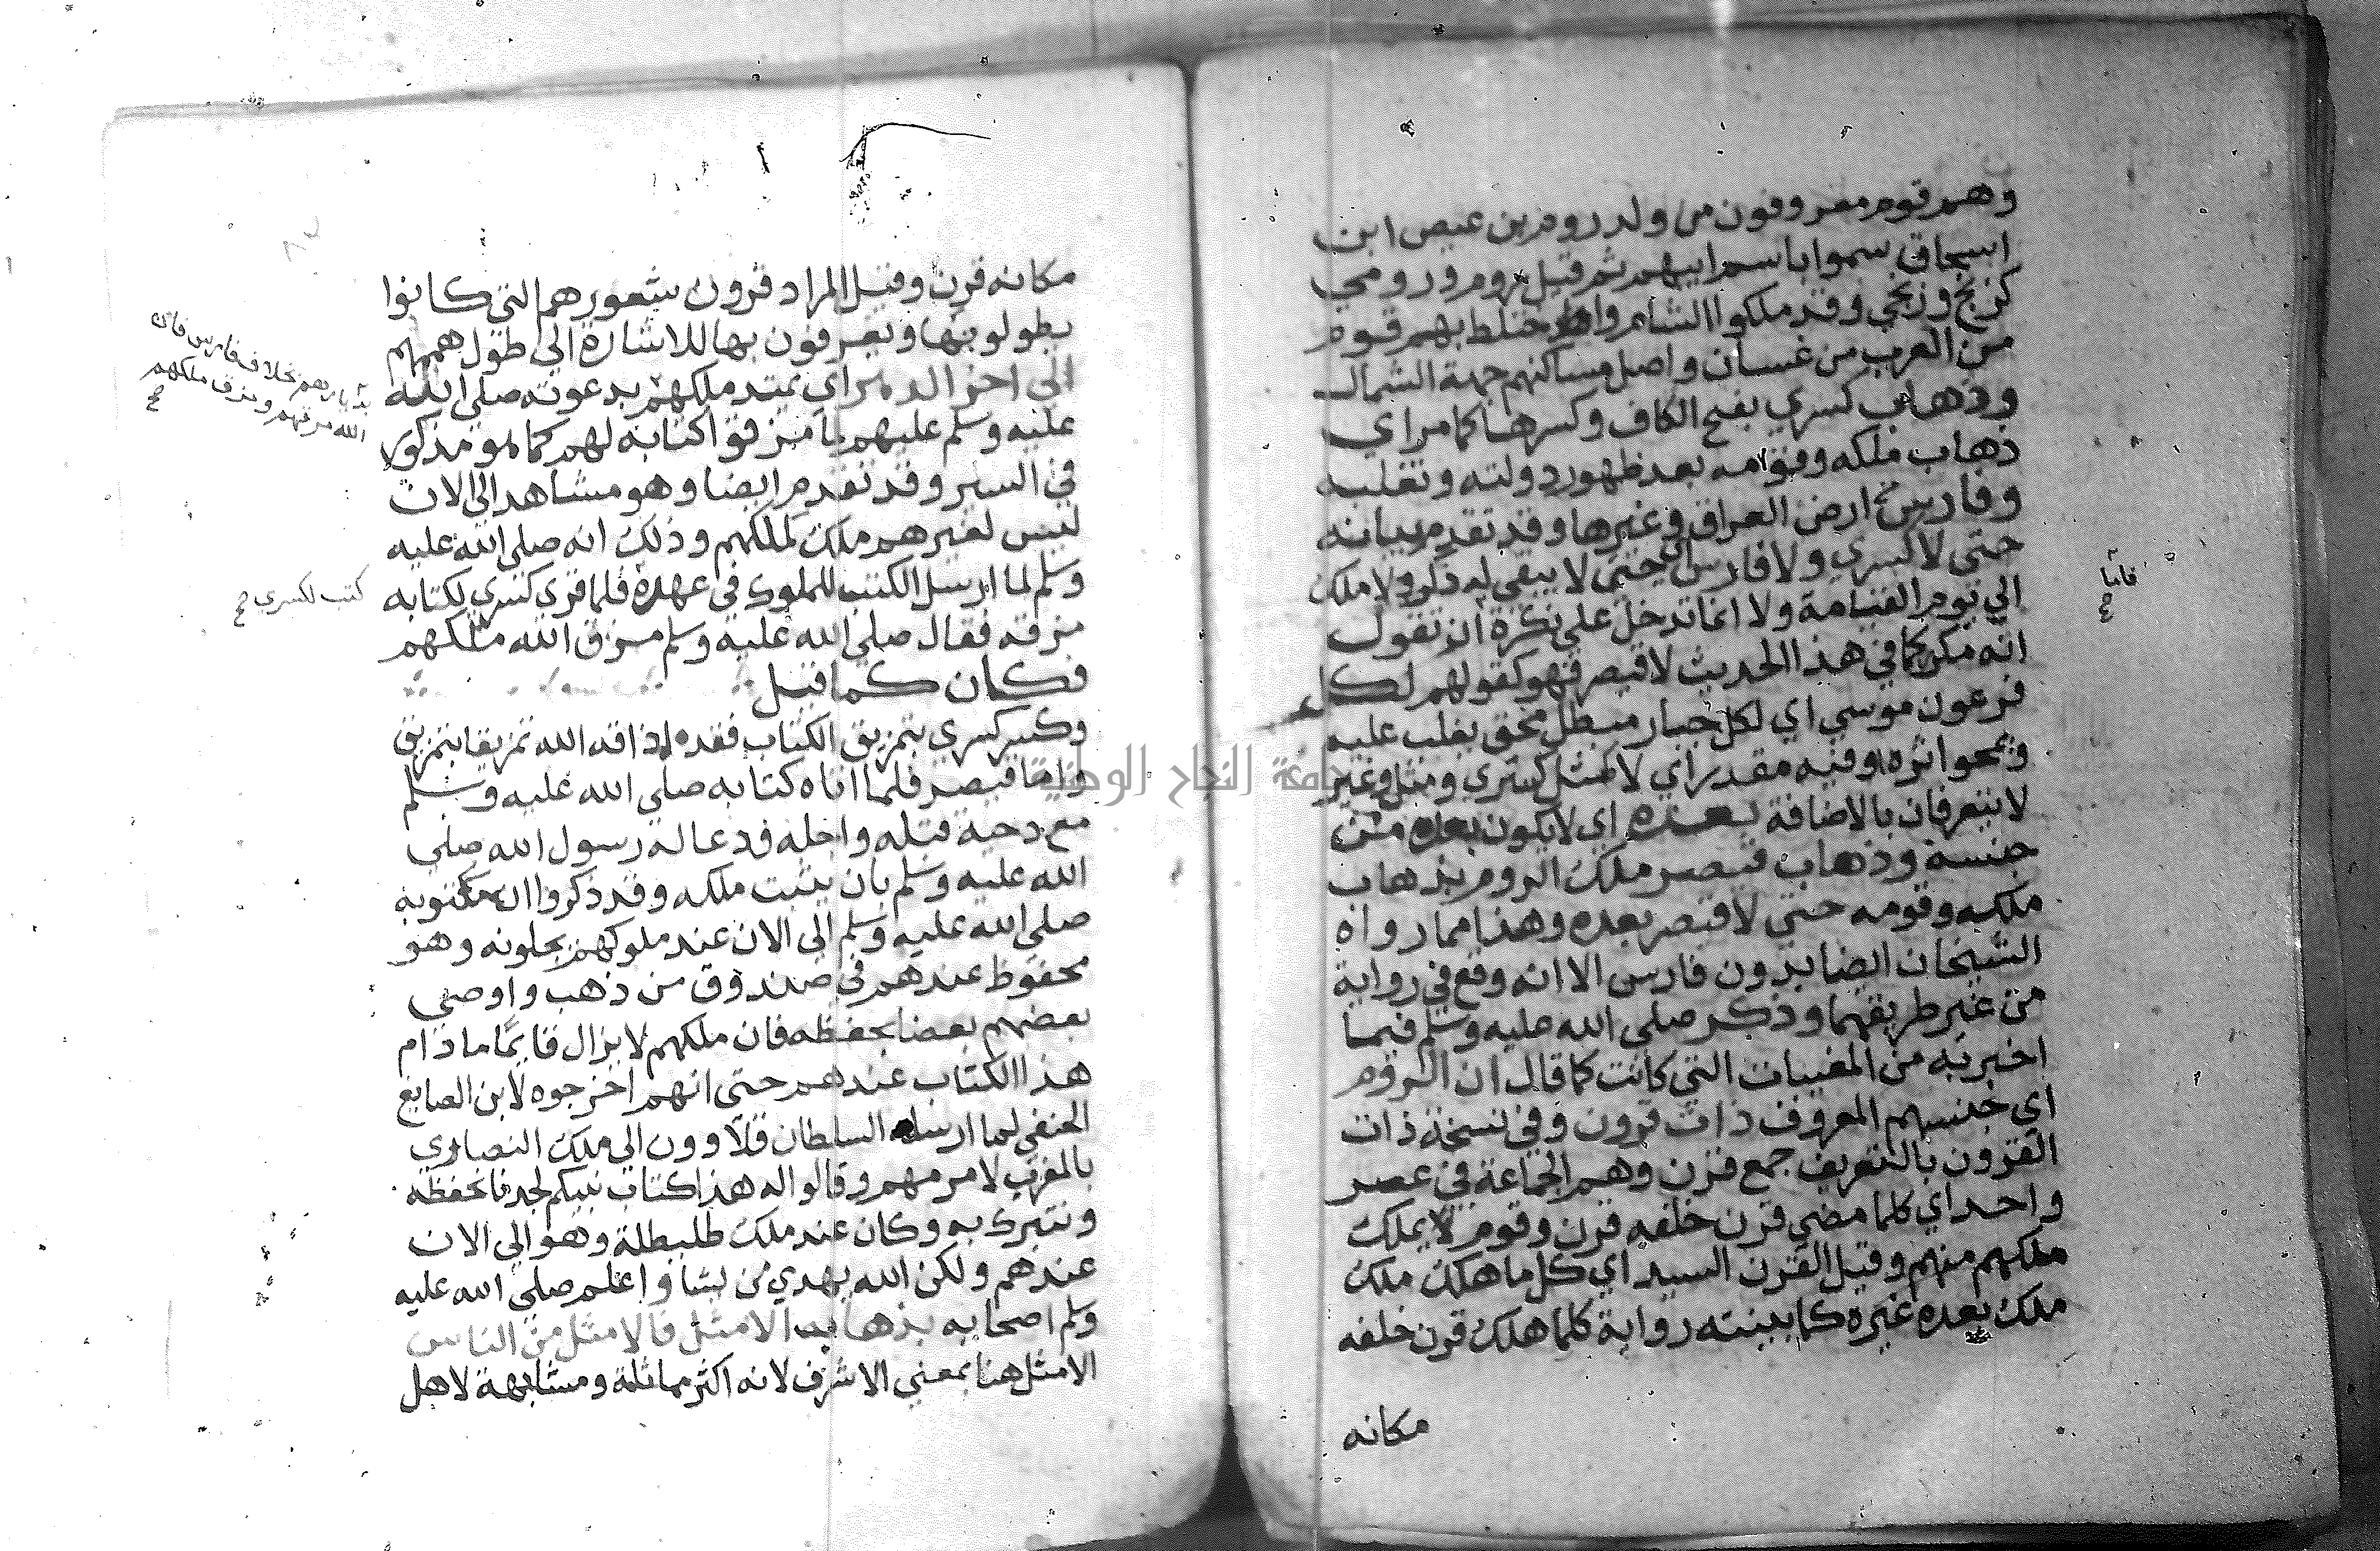 وهم قوم معروفون من ولد روم بن عيص ابن
اسحاق سموا باسم ابيهم ثم قيل روم ورومي
كزنج وزنجي وقد ملكوا الشام واختلط بهم قوم
من العرب من غسان واصل مساكنهم جهة الشمال
وذهاب كسري بفتح الكاف وكسرها كما مر اي
ذهاب ملكه وقومه بعد ظهور دولته وتغلبه
وفارس ارض العراق وغيرها وقد تقدم بيانه
حتى لا كسري ولا فارس اي حتى لا يبقى له ذكر ولا ملك
الي يوم القيامة ولا انما تدخل علي نكرة
انه منكر كما في هذا الحديث لا قيصر فهو كقولهم لكل
فرعون موسي اي لكل جبار مبطل محق يغلب عليه
ويمحو اثره وفيه مقدر اي لا مثل كسري ومثل وغير
لا يتعرفان بالاضافة بعده اي لا يكون بعده من
جنسه وذهاب قيصر ملك الروم بذهاب
ملكه وقومه حتى لا قيصر بعده وهذا مما رواه
الشيخان ايضا بدون فارس الا انه وقع في رواية
من غير طريقهما وذكر صلى الله عليه وسلم فيما
اخبر به من المغيبات التي كانت كما قال ان الروم
اي جنسهم المعروف ذات قرون وفي نسخة ذات
القرون بالتعريف جمع قرن وهم الجماعة في عصر
واحد اي كلما مضي قرن خلفه قرن وقوم لا يملك
ملكهم منهم وقيل القرن السيد اي كل ما هلك ملك
ملك بعده غيره كما بينته رواية كلما هلك قرن خلفه
مكانه
فانيا
مكانه قرن وقيل المراد قرون شعورهم التي كانوا
يطولونها ويعرفون بها للاشارة الي طول هممهم
الي اخر الدهر اي يمتد ملكهم بدعوته صلى الله
عليه وسلم عليهم لما مزقوا كتابه لهم كما هو مذكور
في السير وقد تقدم ايضا وهو مشاهد الى الان
ليس لغيرهم ملك كملكهم وذلك انه صلى الله عليه
وسلم لما ارسل الكتب للملوك في عهده فلما قرى كسري لكتابه
مزقه فقال صلي الله عليه وسلم مزق الله ملكهم
فكان كما قيل
وكسر كسرى بتمزيق الكتاب فقد اذاقه الله تمزيقا بتمزيق
واما قيصر فلما اتاه كتابه صلى الله عليه وسلم
مع دحية قبله واجله فدعا له رسول الله صلي
الله عليه وسلم بان يثبت ملكه وقد ذكروا ان مكتوبه
صلى الله عليه وسلم الى الان عند ملوكهم يجلونه وهو
محفوظ عندهم في صندوق من ذهب واوصى
بعضهم بعضا بحفظه فان ملكهم لا يزال قايما ما دام
هذا الكتاب عندهم حتى انهم اخرجوه لابن الصايغ
الحنفي لما ارسله السلطان قلاوون الى ملك النصاري
بالمغرب لامر مهم وقالوا له هذا كتاب نبيكم لجدنا نحفظه
ونتبرك به وكان عند ملك طليطلة وهو الي الان
عندهم ولكن الله يهدي من يشا واعلم صلي الله عليه
وسلم اصحابه بذهاب الامثل فالامثل من الناس
الامثل هنا بمعني الاشرف لانه اكثر مماثلة ومشابهة لاهل
بديارهم بخلاف فارس فان
الله مزقهم ومزق ملكهم
صح
كتب لكسري صح
جامعة النجاح الوطنية